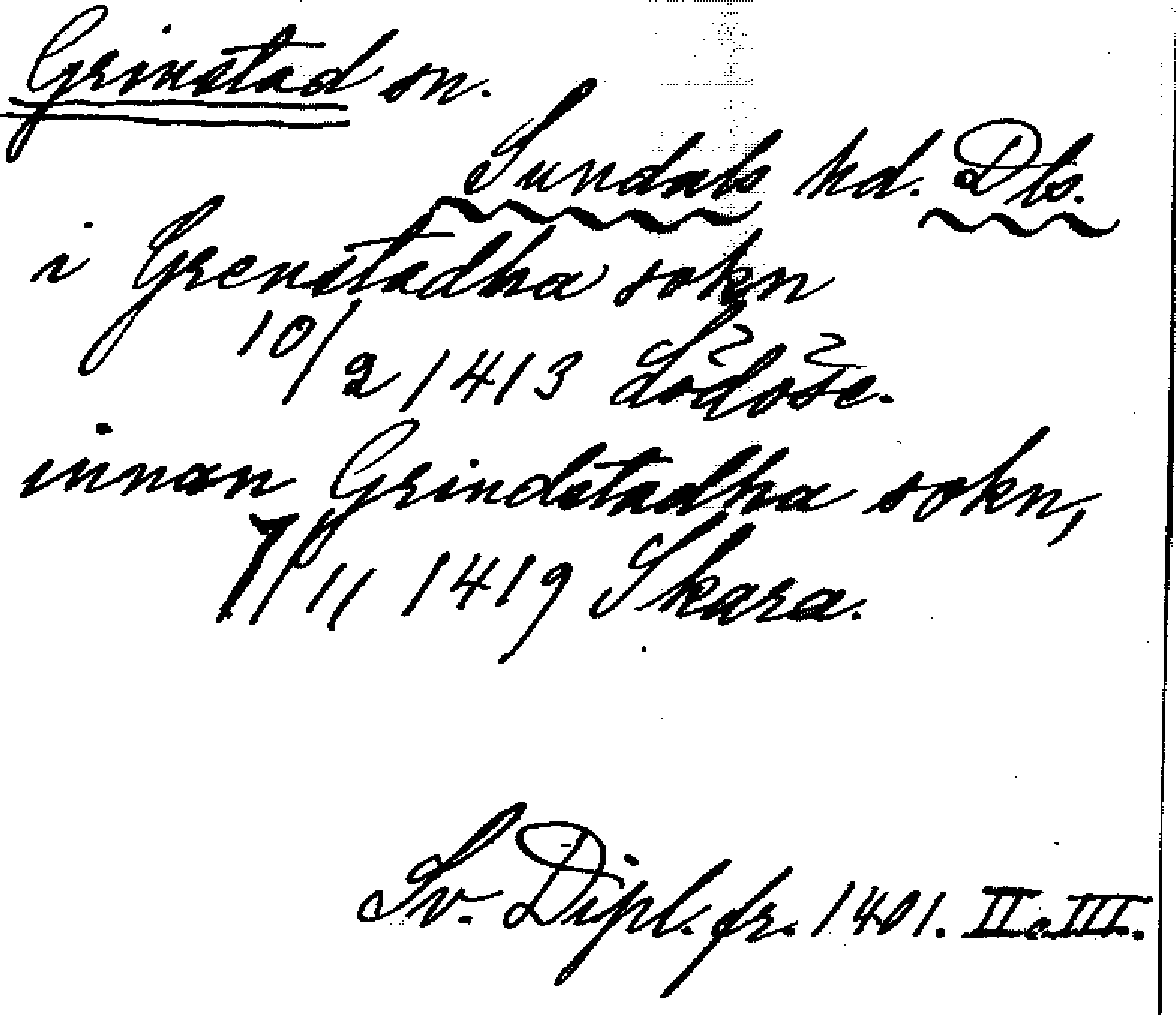 Grinstad sn.
Sundals hd. Dls.
i Grenstadha sokn
10/2 1413 Lödöse.
innan Grindstadha sokn,
7/11 1419 Skara.
Sv. Dipl. fr. 1401. II o. III.